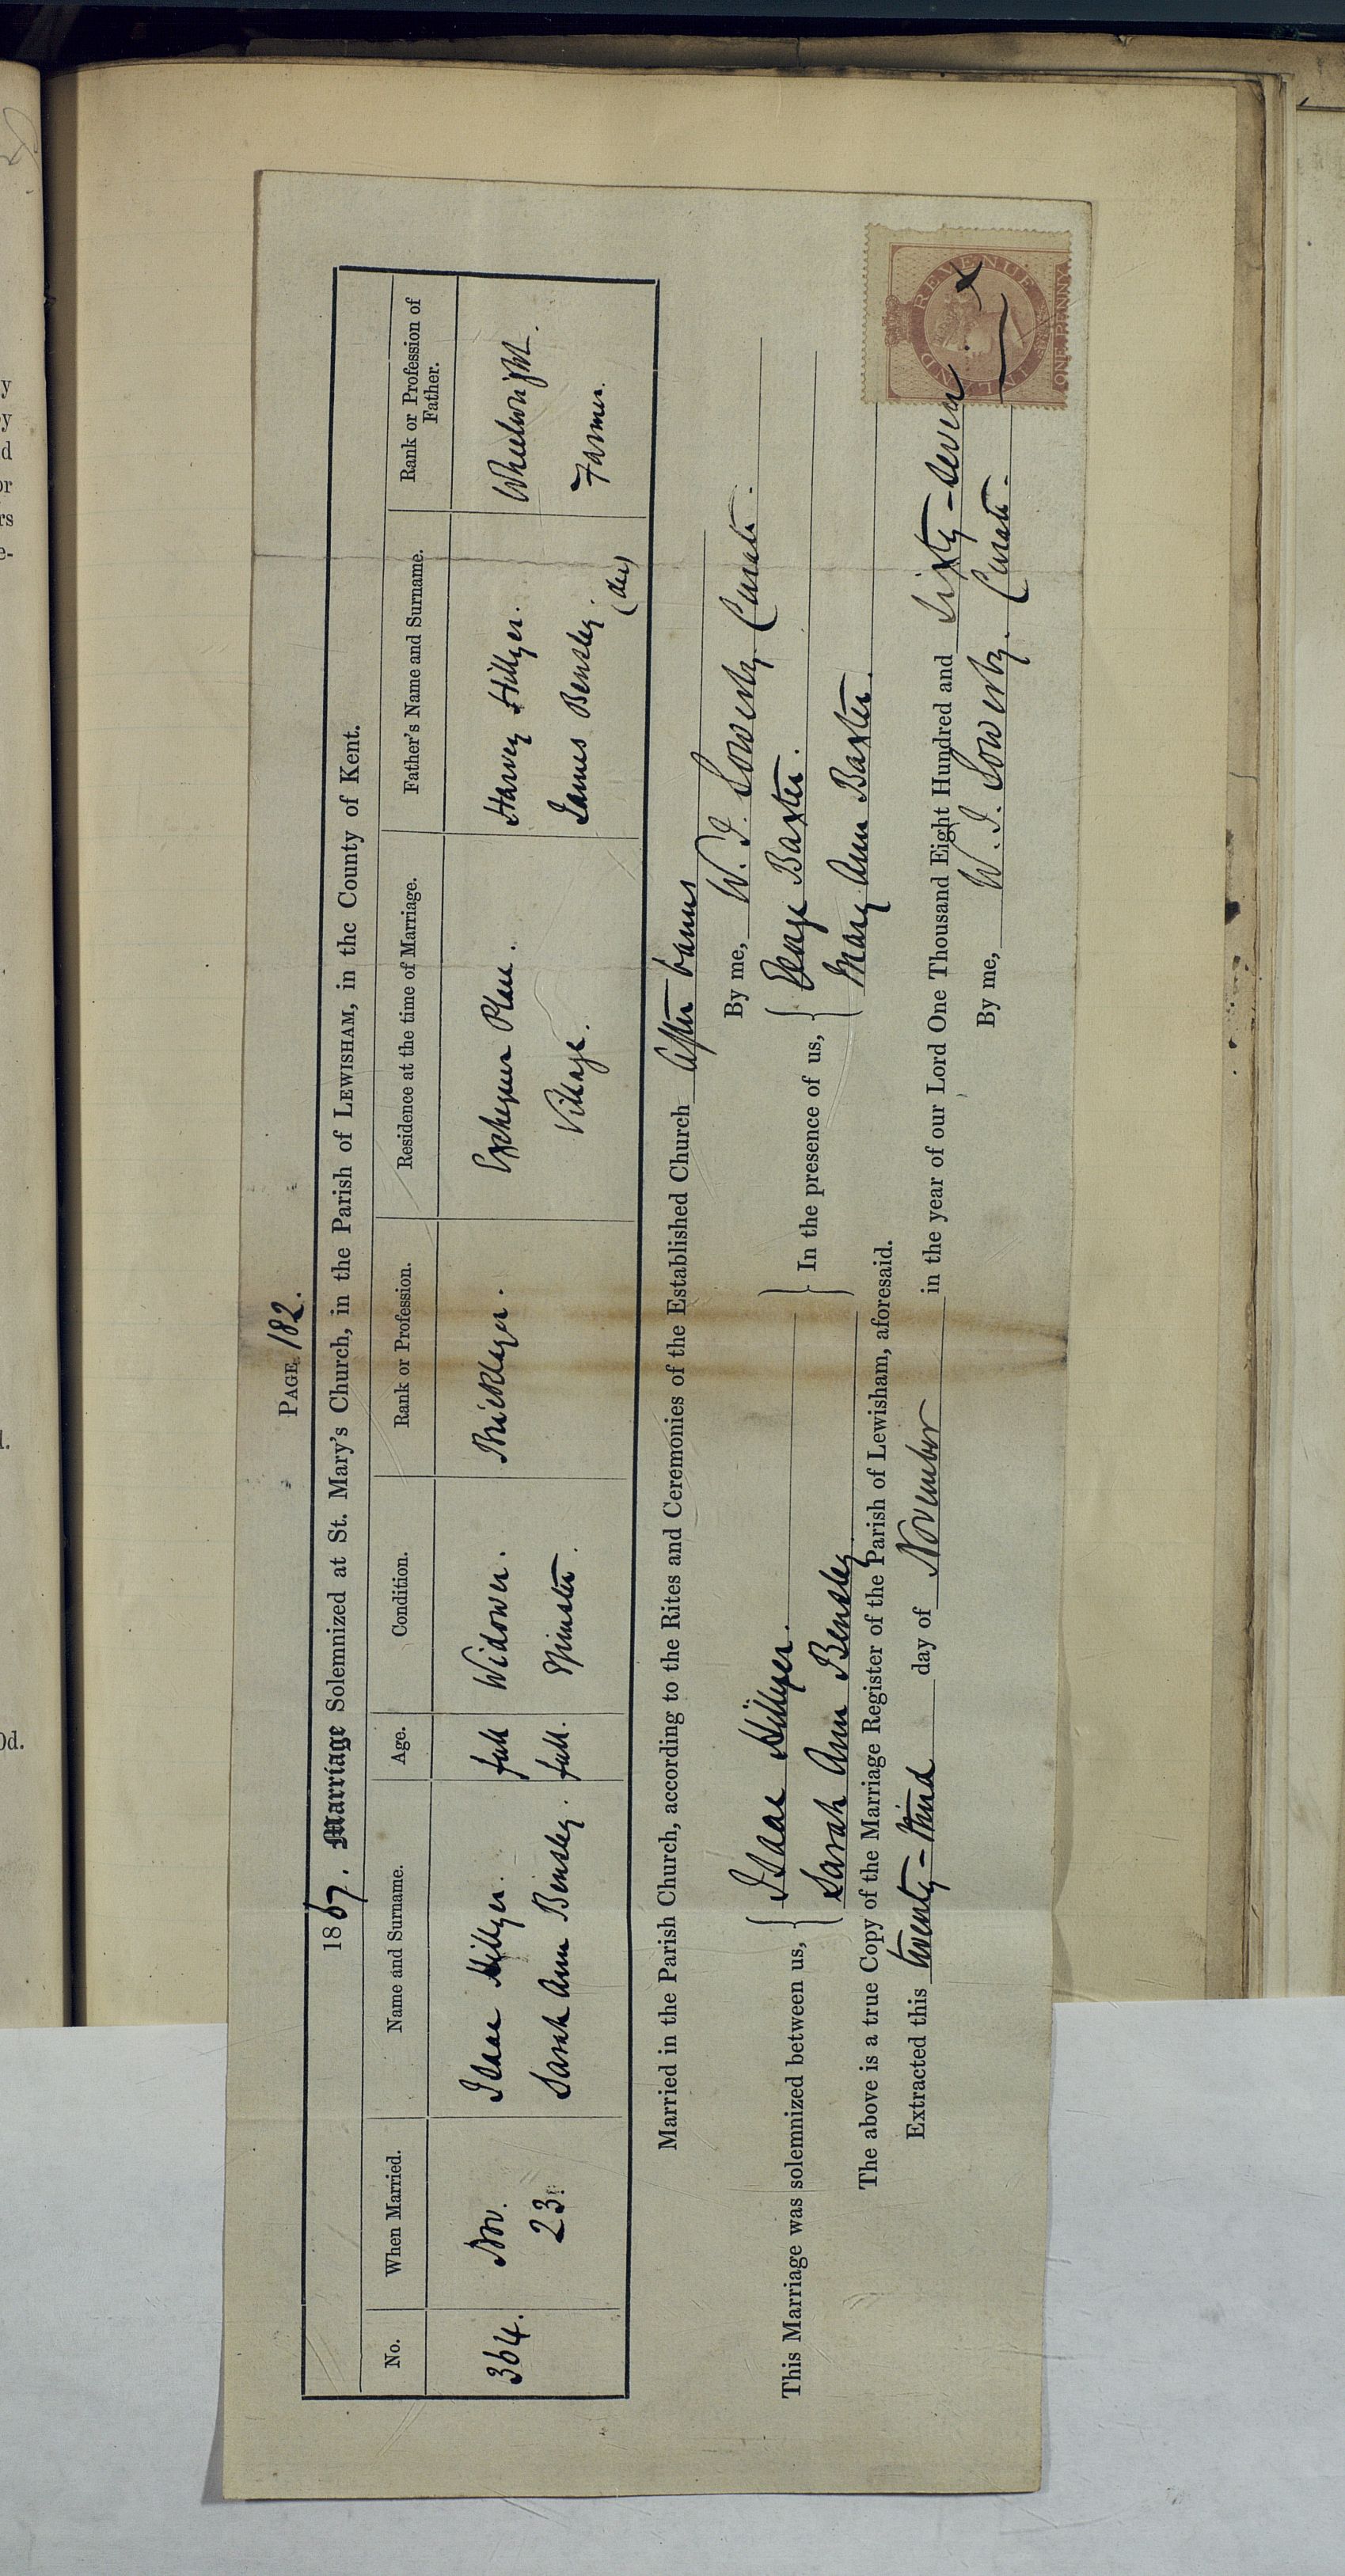 PAGE 182.
1867. Marriage Solemnized at St. Mary's Church, in the Parish of LEWISHAM, in the County of Kent.
No. When Married. Name and Surname. Age. Condition. Rank or Profession. Residence at the time of Marriage. Father's Name and Surname. Rank or Profession of Father.
364. Nov. Isaac Hillyer. full Widower. Bricklayer. Exchequer Place. Harvey Hillyer. Wheelwright.
23. Sarah Ann Bensley. full. Spinster. Village. James Bensley. (dec) Farmer.
Married in the Parish Church, according to the Rites and Ceremonies of the Established Church after banns
By me, W. J. Sowerby. Curate.
This Marriage was solemnized between us, { Isaac Hillyer. } In the presence of us, { George Baxter.
Sarah Ann Bensley Mary Ann Baxter.
The above is a true Copy of the Marriage Register of the Parish of Lewisham, aforesaid.
Extracted this twenty-third day of November in the year of our Lord One Thousand Eight Hundred and sixty-seven
By me, W. J. Sowerby. Curate.
INLAND REVENUE
ONE PENNY
y
by
d
or
rs
e-
d.
0d.